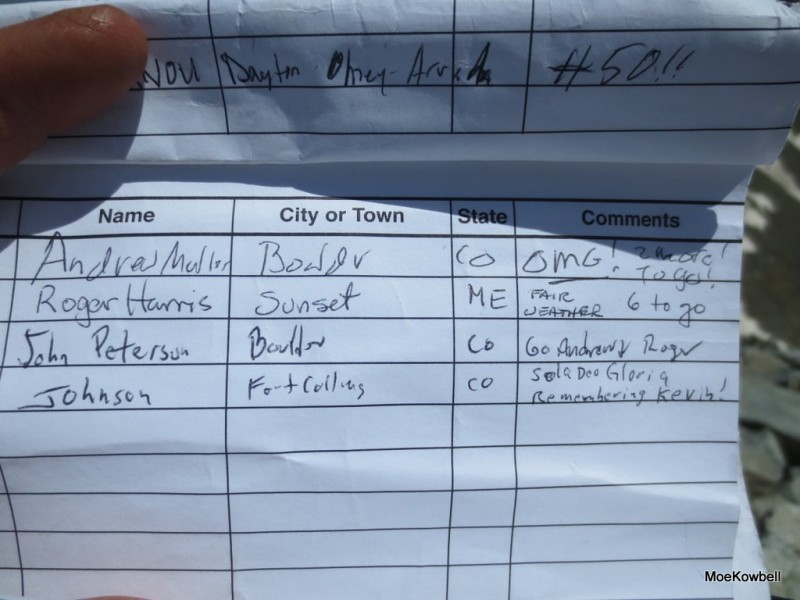 Dayton Olney-Arvada #50!!
Name City or Town State Comments
Andrew Muller Boulder CO OMG! 2 more! To go!
Roger Harris Sunset ME FAIR WEATHER 6 to go
John Peterson Boulder CO Go Andrew & Roger
Johnson Fort Collins CO Sola Deo Gloria Remembering Kevin!
MoeKowbell